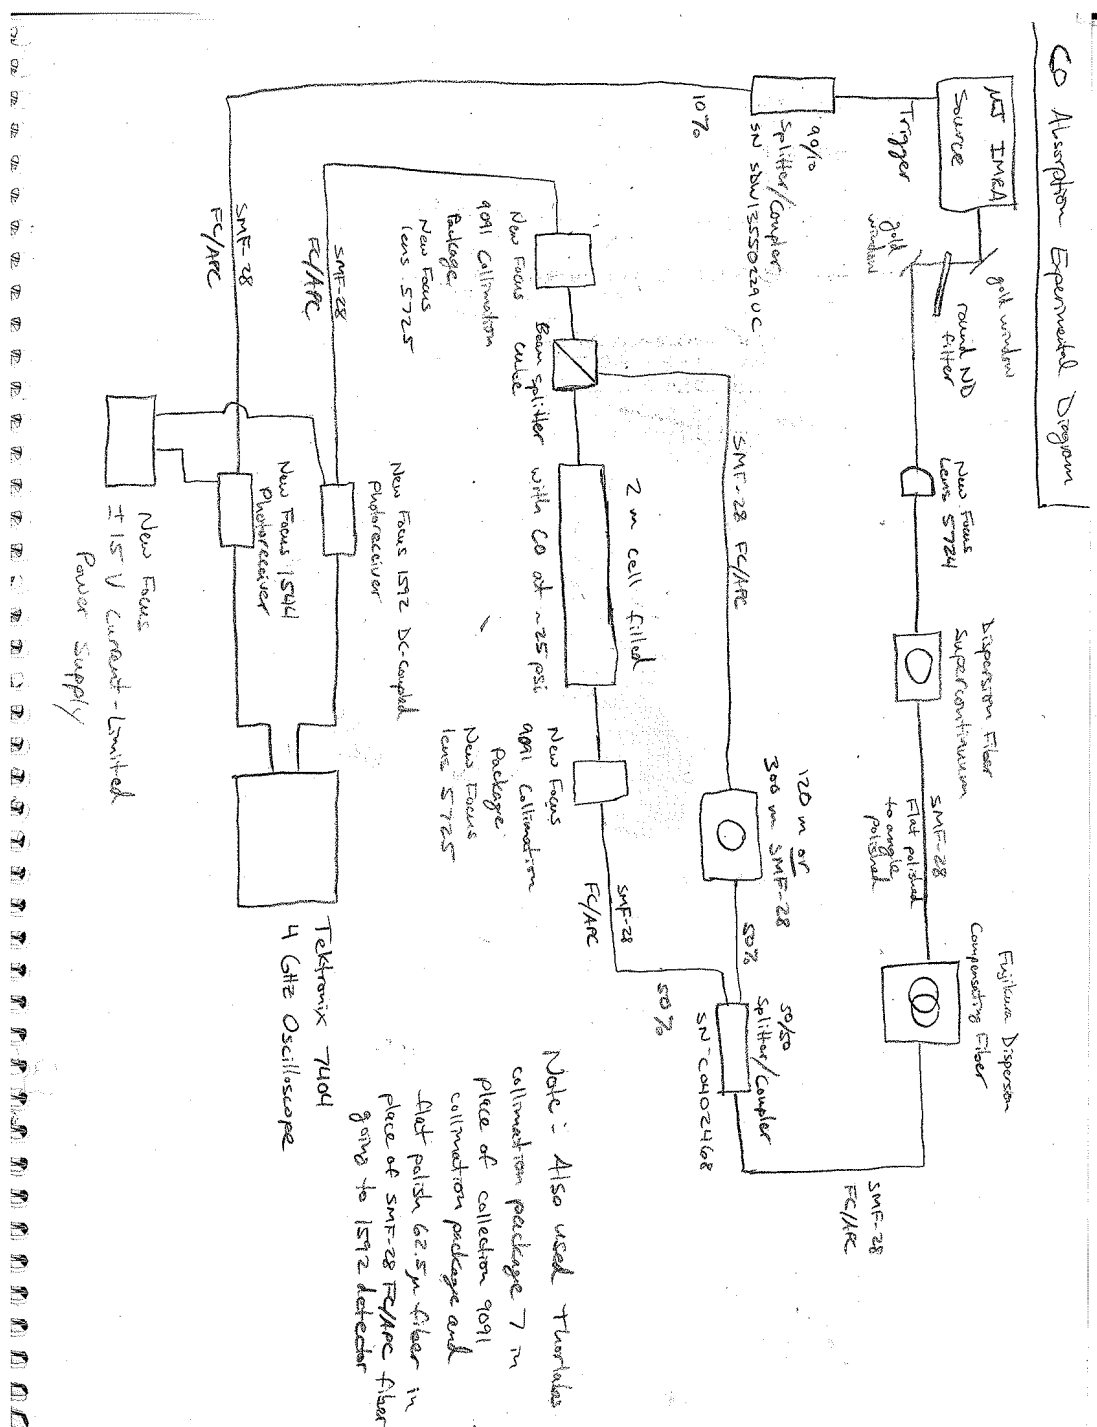 CO Absorption Experimental Diagram
µJ IMRA
Source
Trigger
gold window
gold
window
round ND
filter
New Focus
Lens 5724
Dispersion Fiber
Supercontinuum
SMF-28
Flat polished
to angle
polished
Fujikura Disperson
Compensating Fiber
SMF-28
FC/APC
90/10
Splitter/Coupler
SN SDW13550229UC
10%
SMF-28 FC/APC
120 m or
300 m SMF-28
50%
50/50
Splitter/Coupler
SN-C0402468
50%
New Focus
9091 Collimation
Package
New Focus
lens 5725
Beam splitter
cube
2 m cell filled
with CO at ~25 psi
New Focus
9091 Collimation
Package
New Focus
lens 5725
SMF-28
FC/APC
SMF-28
FC/APC
SMF-28
FC/APC
New Focus 1592 DC-coupled
photoreceiver
New Focus 1544
Photoreceiver
New Focus
±15 V Current-Limited
Power Supply
Tektronix 7404
4 GHz Oscilloscope
Note: Also used Thorlabs
collimation package 7 in
place of collection 9091
collimation package and
flat polish 62.5 µ fiber in
place of SMF-28 FC/APC fiber
going to 1592 detector